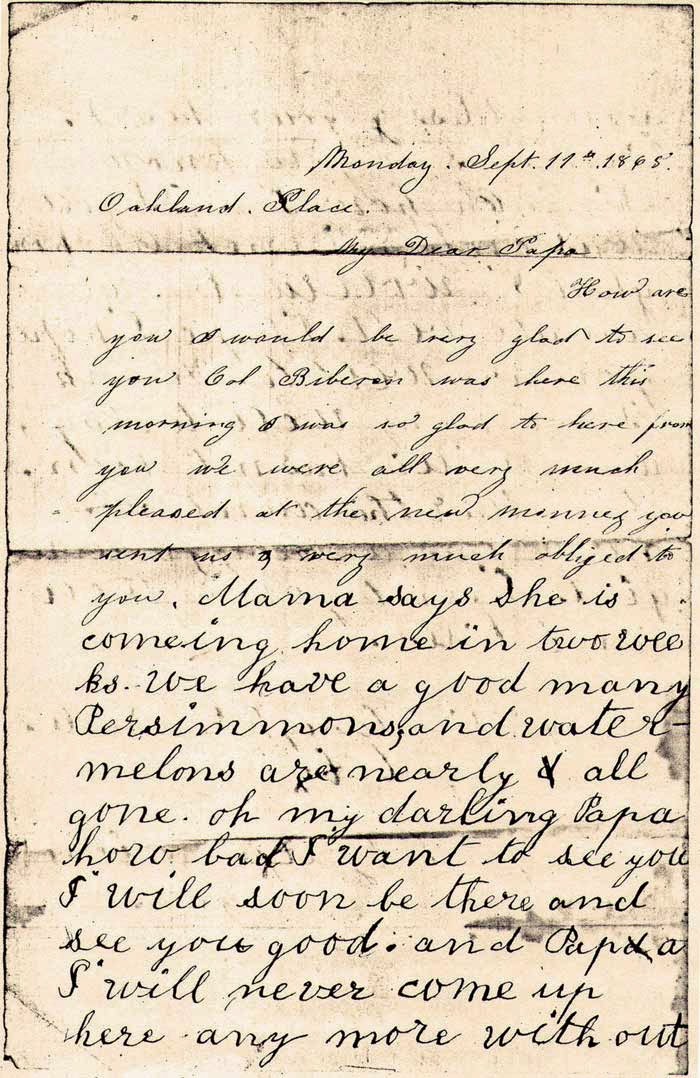 Monday. Sept. 11th. 1865.
Oakland. Place.
My Dear Papa
How are
you I would be very glad to see
you Col Biberon was here this
morning I was so glad to here from
you we were all very much
pleased at the new minney you
sent us & very much obliged to
you. Mama says she is
comeing home in two wee
ks. We have a good many
Persimmons, and water-
melons are nearly all
gone. oh my darling Papa
how bad I want to see you
I will soon be there and
see you good. and Papa
I will never come up
here any more with out